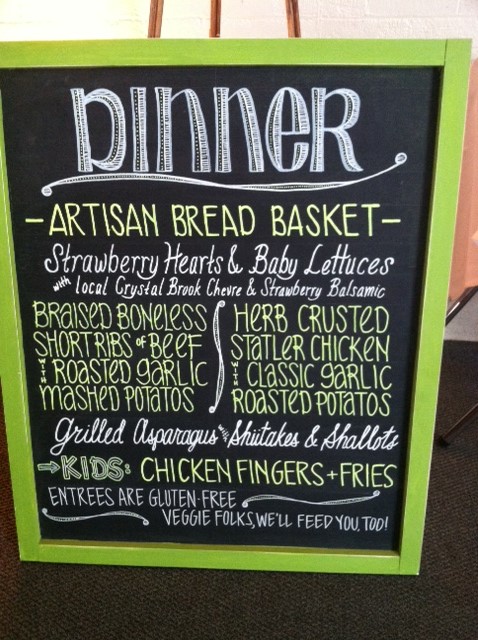 DINNER
- ARTISAN BREAD BASKET -
Strawberry Hearts & Baby Lettuces
with local Crystal Brook Chevre & Strawberry Balsamic
BRAISED BONELESS
SHORTRIBS OF BEEF
WITH ROASTED GARLIC
MASHED POTATOS
HERB CRUSTED
STATLER CHICKEN
WITH CLASSIC GARLIC
ROASTED POTATOS
Grilled Asparagus with Shiitakes & Shallots
→KIDS: CHICKEN FINGERS + FRIES
ENTREES ARE GLUTEN-FREE
VEGGIE FOLKS, WE'LL FEED YOU, TOO!